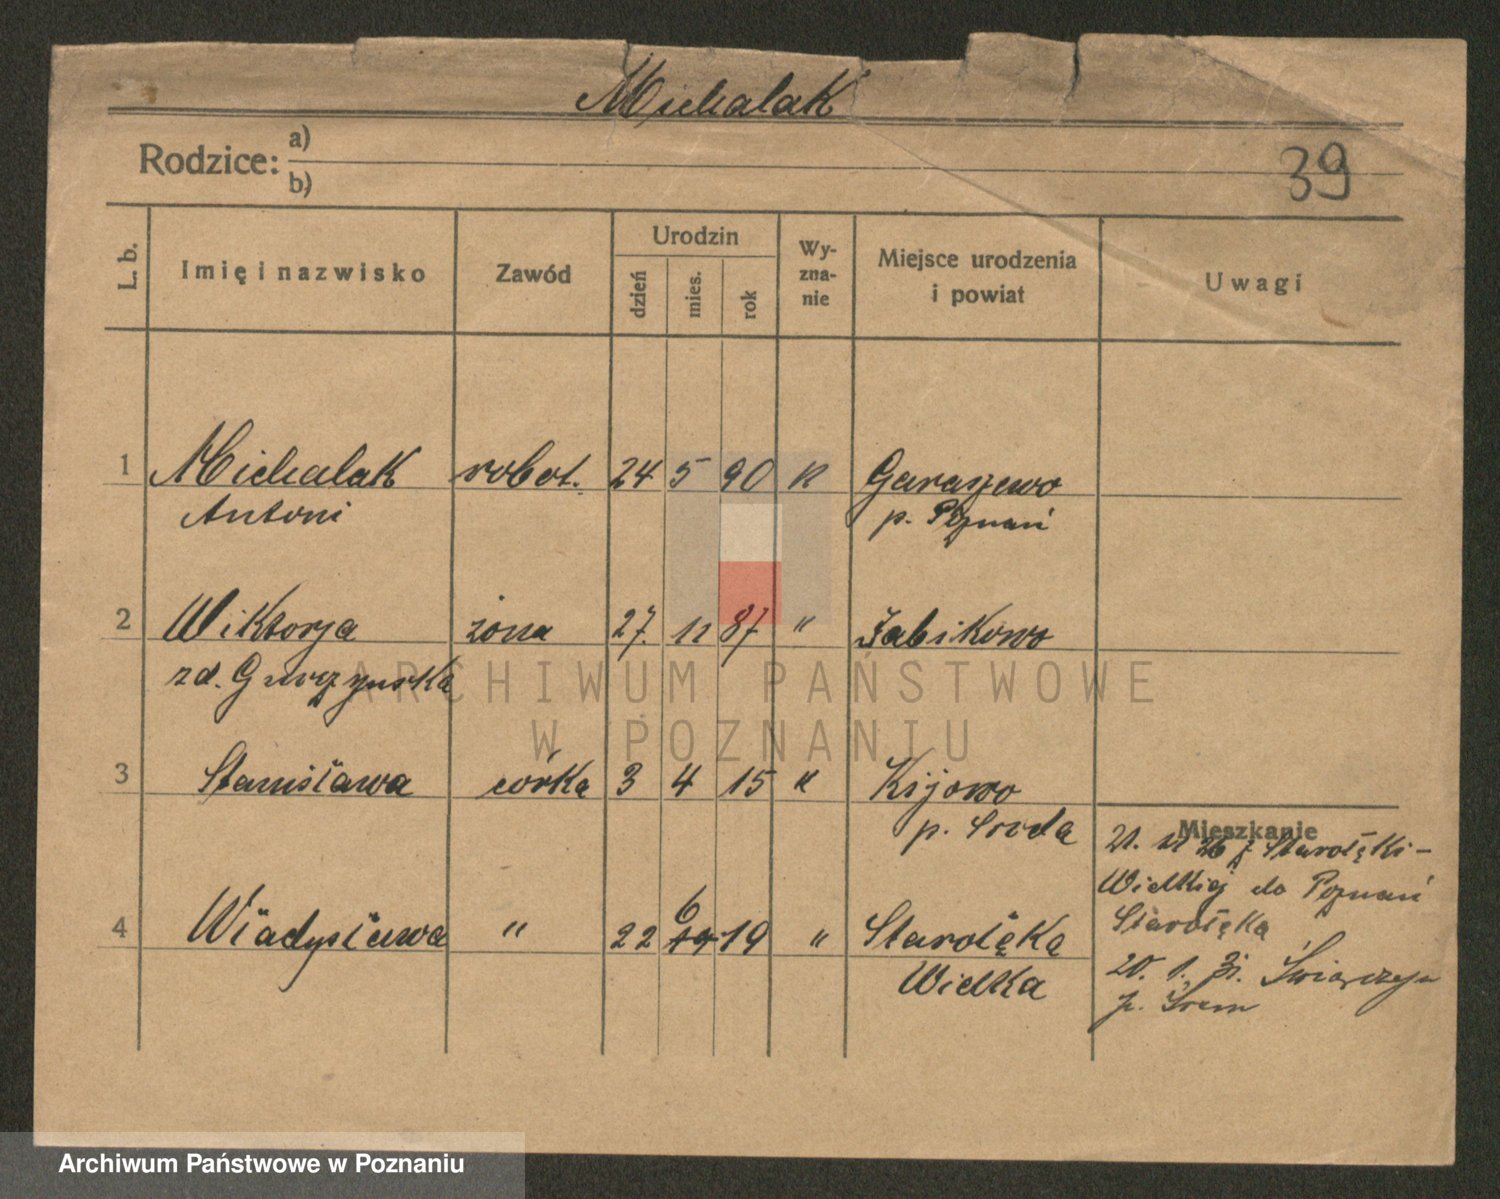 Michalak
Rodzice: a)
b)
39
L. b.
Imię i nazwisko
Zawód
Urodzin
dzień
mies.
rok
Wy-
zna-
nie
Miejsce urodzenia
i powiat
Uwagi
1 Michalak robot. 24 5 90 k Garaszewo
Antoni p. Poznań
2 Wiktorja żona 27. 11 87 " Żabikowo
zd. Gurczyńska
3 Stanisława córka 3 4 15 k Kijowo
p. Środa
Mieszkanie
21. 11 26 z Starołęki-
Wielkiej do Poznań
Starołęka
4 Władysława " 22 6 19 " Starołęka
Wielka
20. 1. 31.
p. Śrem
ARCHIWUM PAŃSTWOWE
W POZNANIU
Archiwum Państwowe w Poznaniu